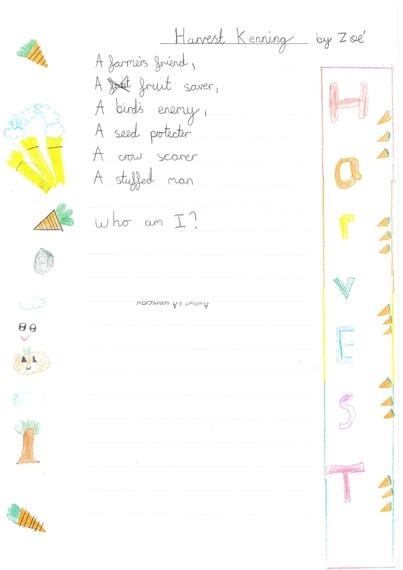 Harvest Kenning by Zoé
A farmer's friend,
A fruit saver,
A bird's enemy,
A seed protecter
A crow scarer
A stuffed man
who am I?
Answer = A scarecrow
HarvEST